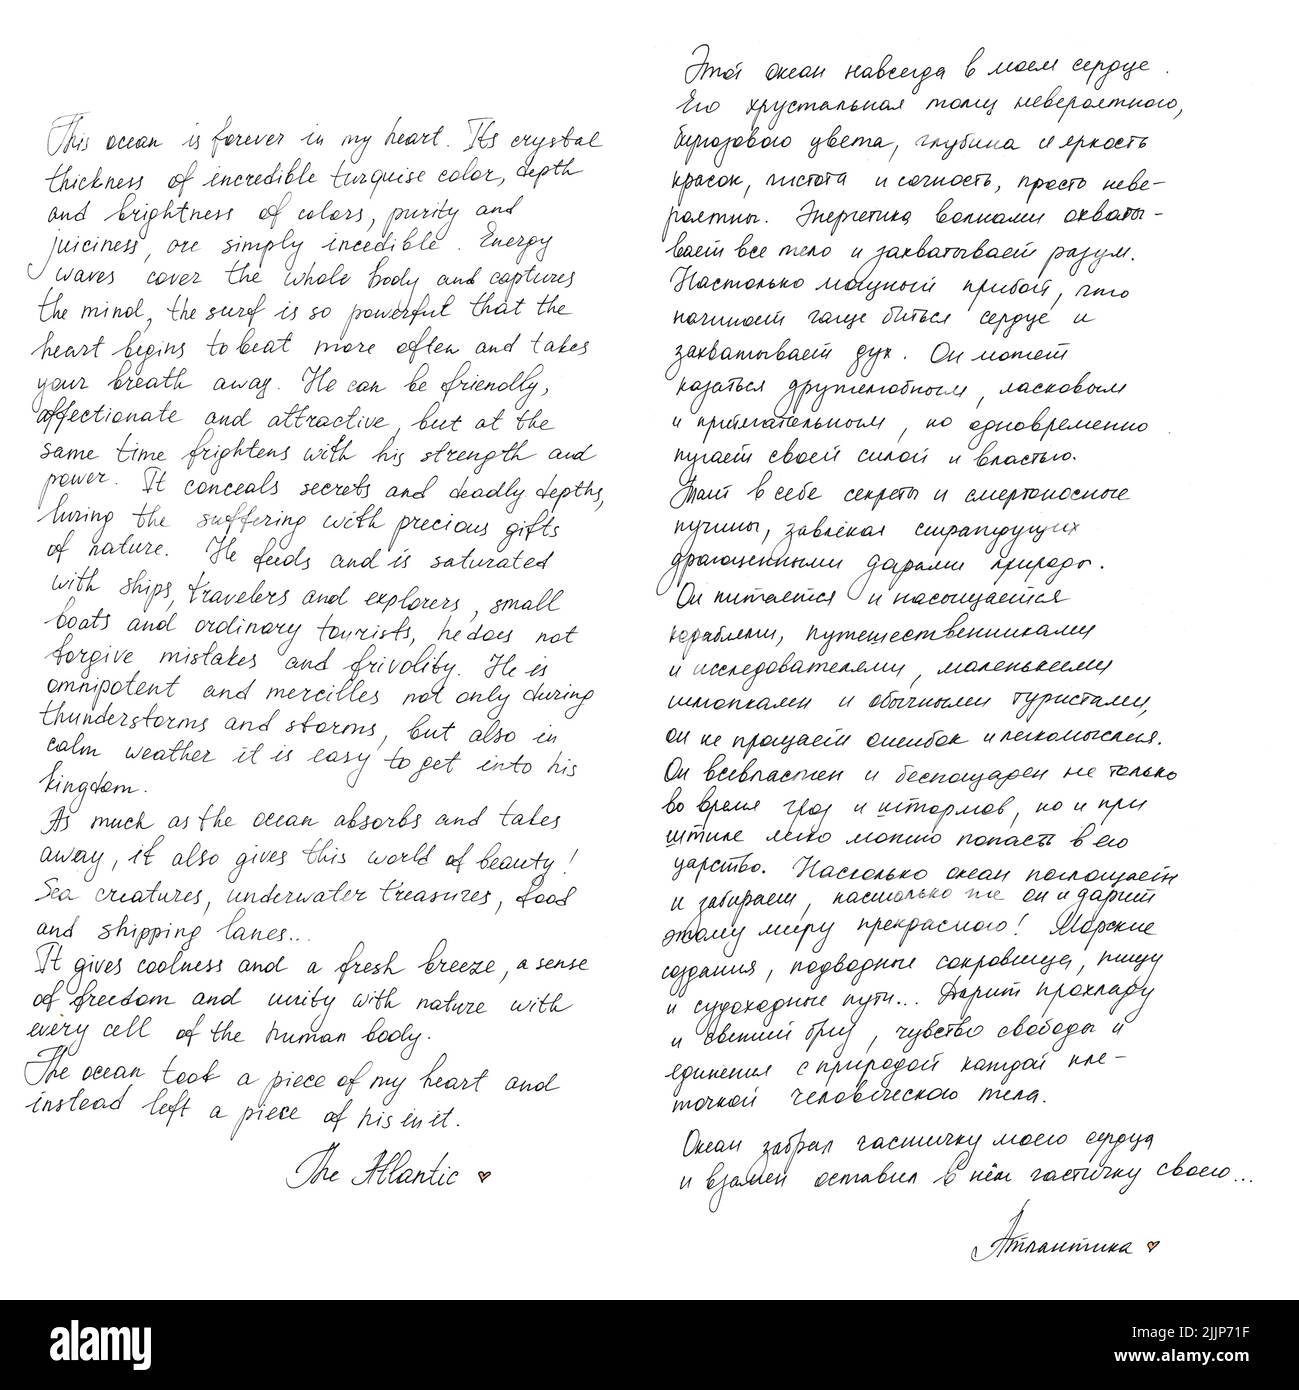 This ocean is forever in my heart. Its crystal
thickness of incredible turquise color, depth
and brightness of colors, purity and
juiciness, are simply incedible. Energy
waves cover the whole body and captures
the mind, the surf is so powerful that the
heart begins to beat more often and takes
your breath away. He can be friendly,
affectionate and attractive, but at the
same time frightens with his strength and
power. It conceals secrets and deadly depths,
luring the suffering with precious gifts
of nature. He feeds and is saturated
with ships, travelers and explorers, small
boats and ordinary tourists, he does not
forgive mistakes and frivolity. He is
omnipotent and mercilles not only during
thunderstorms and storms, but also in
calm weather it is easy to get into his
kingdom.
As much as the ocean absorbs and takes
away, it also gives this world of beauty!
Sea creatures, underwater treasures, food
and shipping lanes...
It gives coolness and a fresh breeze, a sense
of freedom and unity with nature with
every cell of the human body.
The ocean took a piece of my heart and
instead left a piece of his in it.
The Atlantic
Этот океан навсегда в моем сердце.
Его хрустальная толщ невероятного,
бирюзового цвета, глубина и яркость
красок, чистота и сочность, просто неве-
роятны. Энергетика волнами охваты-
вает все тело и захватывает разум.
Настолько мощный прибой, что
начинает чаще биться сердце и
захватывает дух. Он может
казаться дружелюбным, ласковым
и притягательным, но одновременно
пугает своей силой и властью.
Таит в себе секреты и смертоносные
пучины, завлекая страждущих
драгоценными дарами природы.
Он питается и насыщается
кораблями, путешественниками
и исследователями, маленькими
шлюпками и обычными туристами,
он не прощает ошибок и легкомыслия.
Он всевластен и беспощаден не только
во время гроз и штормов, но и при
штиле легко можно попасть в его
царство. Насколько океан поглощает
и забирает, настолько же он и дарит
этому миру прекрасного! Морские
создания, подводные сокровища, пищу
и судоходные пути... Дарит прохладу
и свежий бриз, чувство свободы и
единения с природой каждой кле-
точкой человеческого тела.
Океан забрал частичку моего сердца
и взамен оставил в нём частичку своего...
Атлантика
alamy
Image ID: 2JJP71F
www.alamy.com